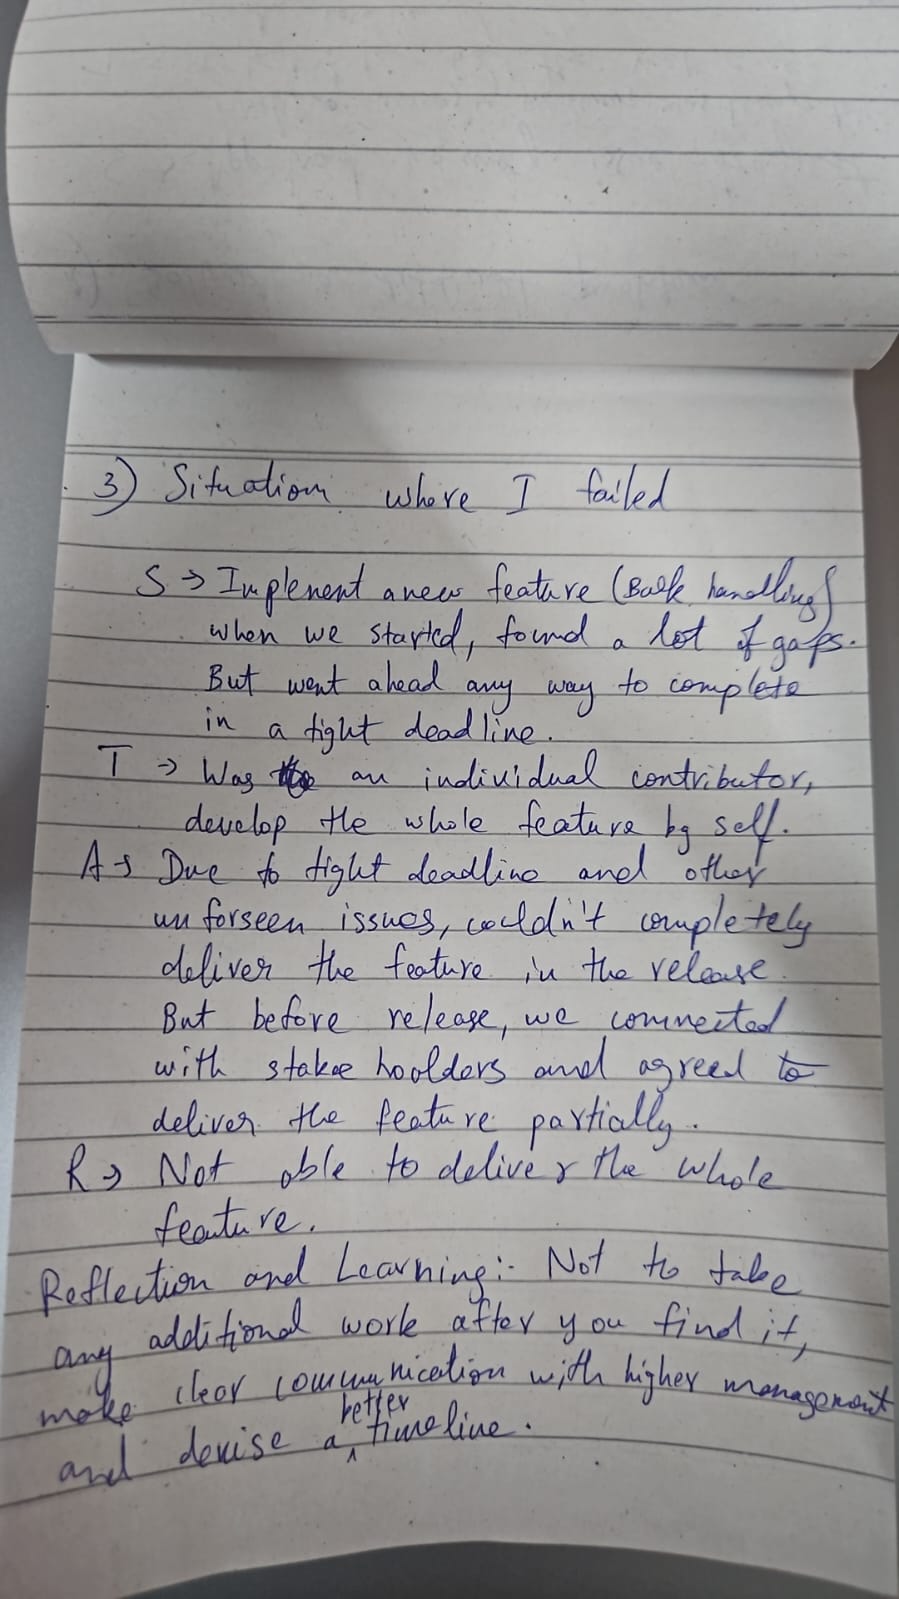 3) Situation where I failed
S → Implement a new feature (Bulk handling)
when we started, found a lot of gaps.
But went ahead any way to complete
in a tight deadline.
T → Was an individual contributor,
develop the whole feature by self.
A → Due to tight deadline and other
unforseen issues, couldn't completely
deliver the feature in the release.
But before release, we connected
with stakee hoolders and agreed to
deliver the feature partially.
R → Not able to deliver the whole
feature.
Reflection and Learning:- Not to take
any additional work after you find it,
make clear communication with higher management
and devise a better timeline.